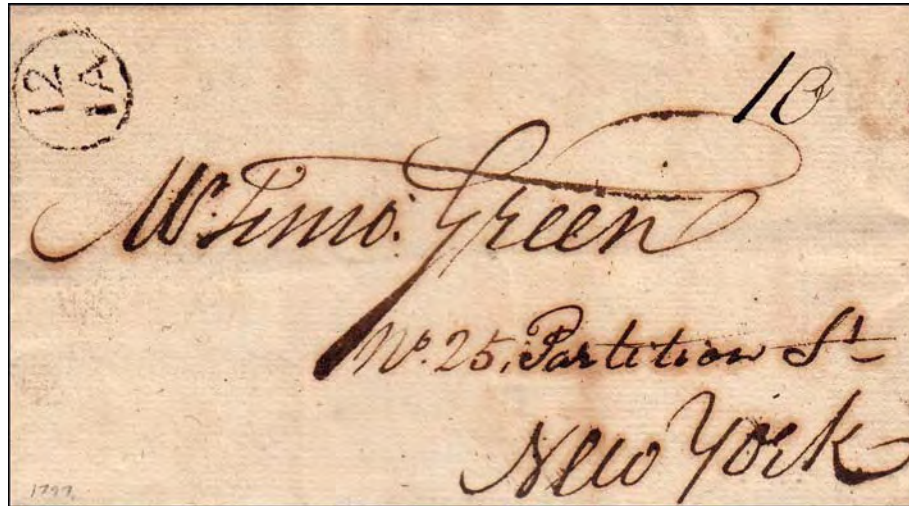 12
1A
10
Mr. Timo: Green
No. 25, Partition St
New York
1797